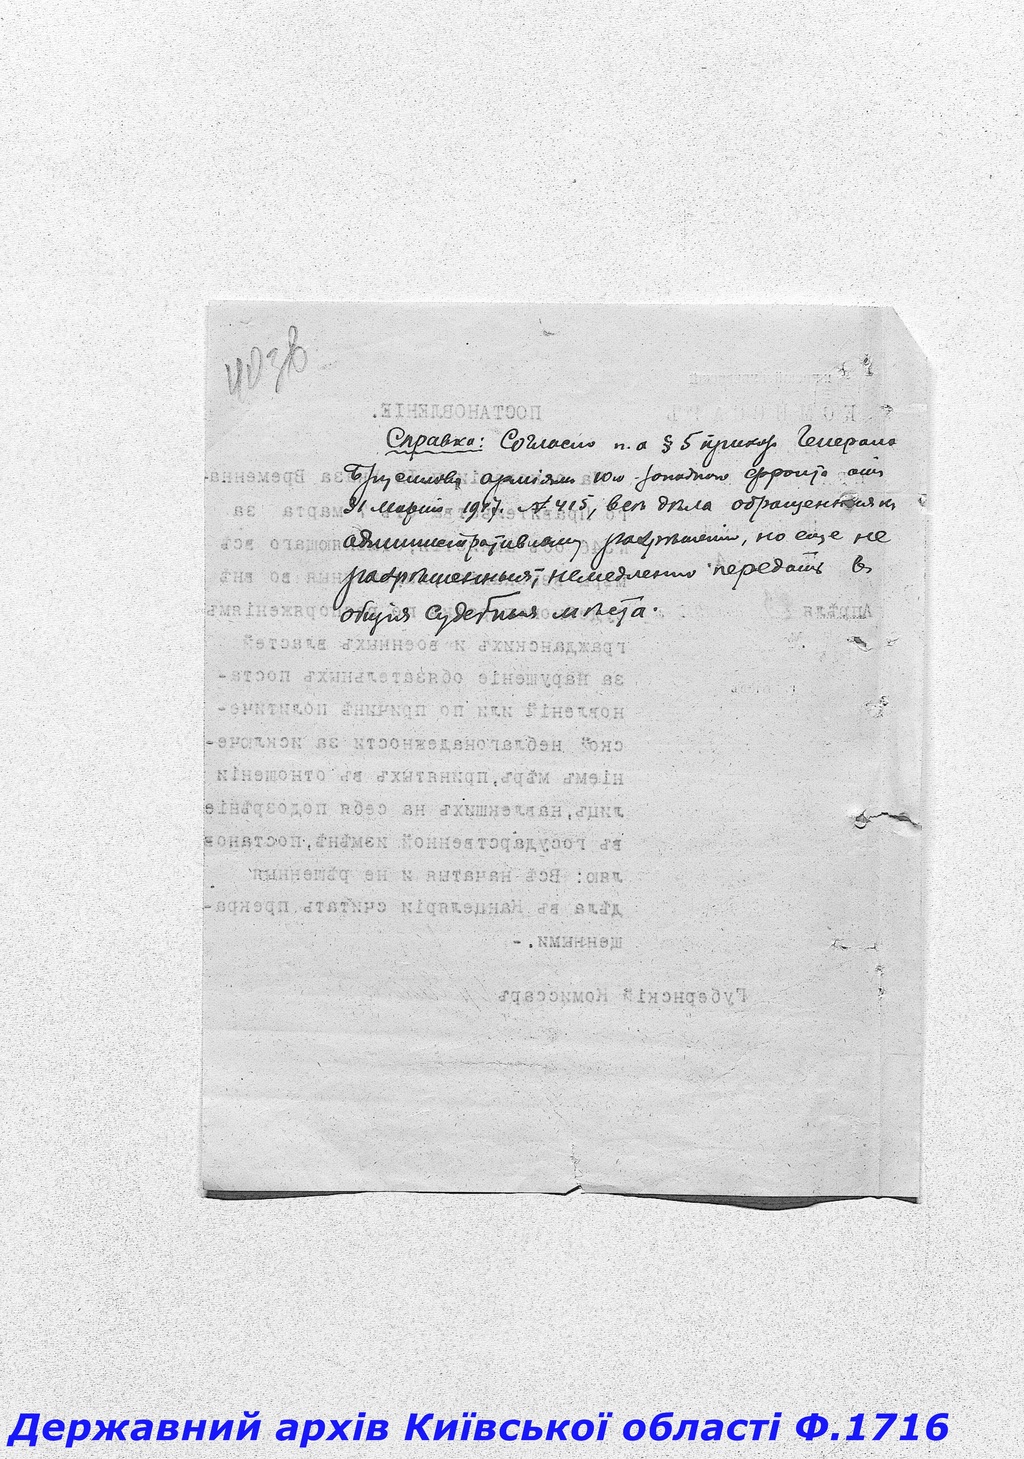 403в
Справка: Согласно п. а § 5 приказа Генерала
Брусилова арміямъ юго западного фронта отъ
31 марта 1917 г. № 415, все дѣла обращенныя къ
административному разрѣшенію, но еще не
разрѣшенныя, немедленно передать въ
общія судебныя мѣста.
ПОСТАНОВЛЕНІЕ.
Временна-
марта за
всѣ
во внѣ
Апрѣля
гражданскихъ и военныхъ властей
за нарушеніе обязательныхъ поста-
новленій или по причинѣ политиче-
ской неблагонадежности за исключе-
ніемъ мѣръ, принятыхъ въ отношеніи
лицъ, навлекшихъ на себя подозрѣніе
въ государственной измѣнѣ, постанов
ляю: Всѣ начатыя и не рѣшенныя
дѣла въ Канцеляріи считать прекра-
щенными.-
Губернскій Комиссаръ
Державний архів Київської області Ф.1716